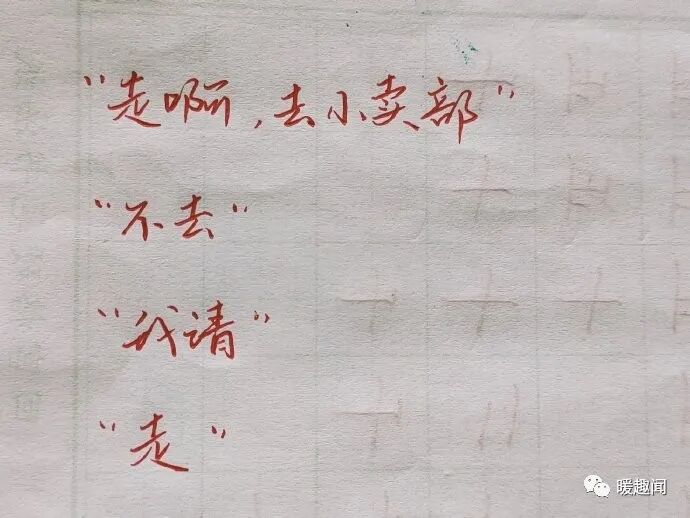 “走啊，去小卖部”
“不去”
“我请”
“走”
暖趣闻